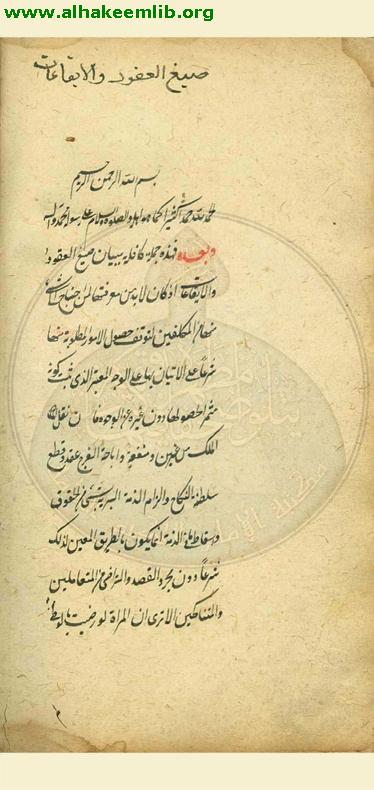 www.alhakeemlib.org
صيغ العقود والايقاعات
بسم الله الرحمن الرحيم
الحمد لله حمدا كثيرا كما هو اهله والصلوة والسلام على رسوله محمد واله
وبعد فهذه جملة كافلة ببيان صيغ العقود
والايقاعات اذ كان لا بد من معرفتها لمن احتاج الى شئ
منها من المكلفين لتوقف حصول الامور المطلوبة منها
شرعا على الاتيان بها على الوجه المعتبر الذي ثبت كونه
مثمرا لحصولها دون غيره من الوجوه فان نقل
الملك من عين ومنفعة واباحة الفرج عقد وقطع
سلطنة النكاح والزام الذمة البرية بشئ من الحقوق
واسقاط ما في الذمة انما يكون بالطريق المعين لذلك
شرعا دون مجرد القصد والتراضي من المتعاملين
والمتناكحين الا ترى ان المراة لو رضيت بالوطئ